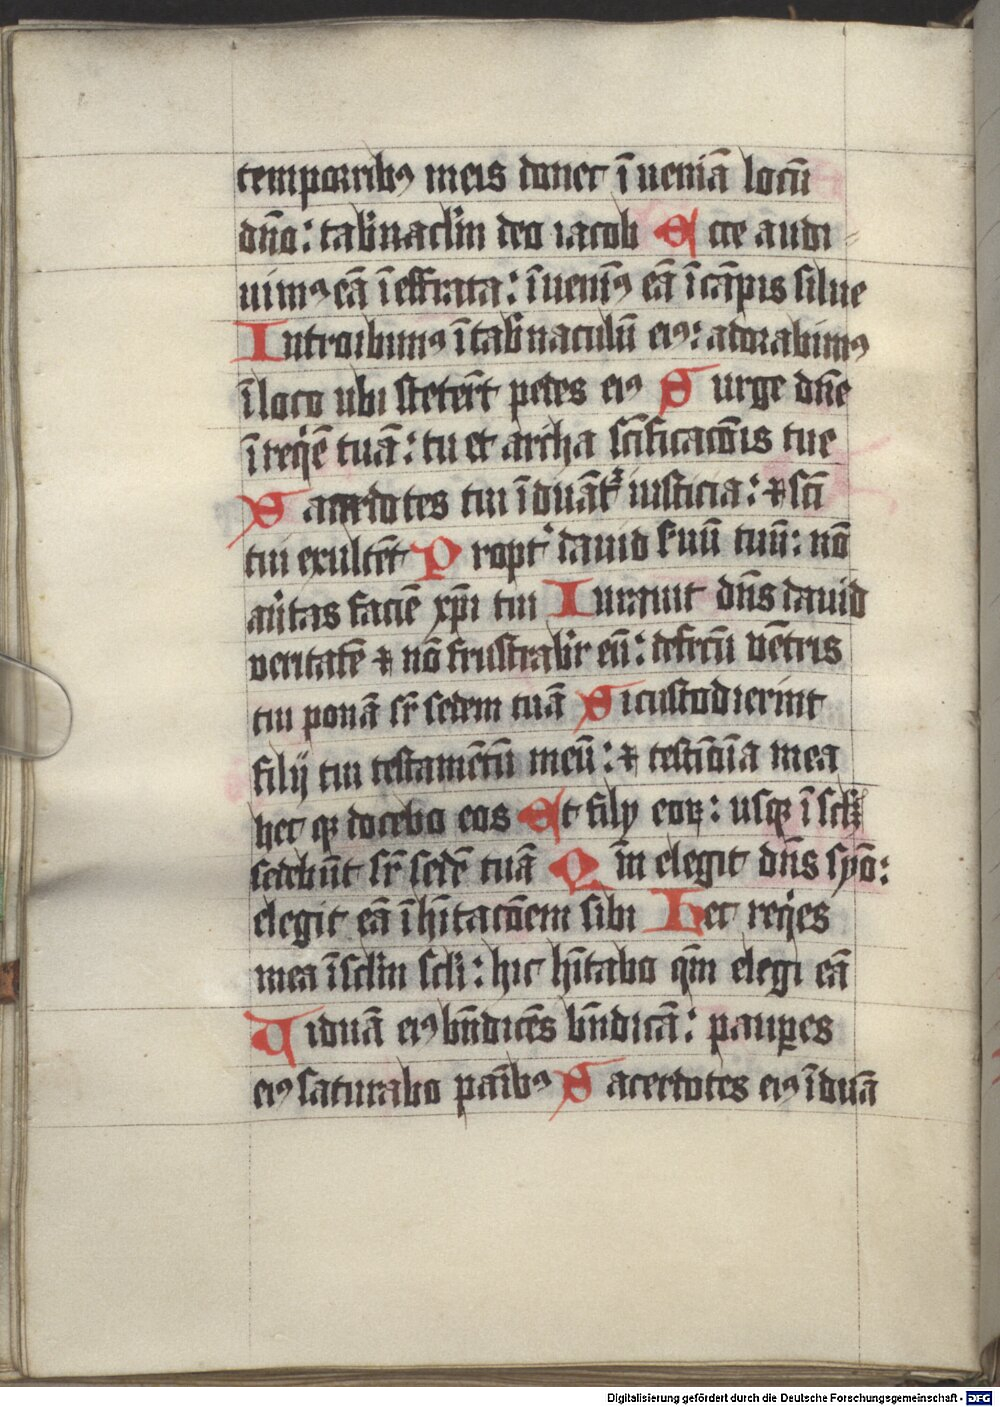 temporibꝯ meis donec ī ueniā locū
dn̄o: tab̾nacl̾m deo iacob Ecce audi
uimꝯ eā ī effrata: īuenimꝯ eā ī cāpis silue
Introibimꝯ ī tab̾naculū eiꝯ: adorabimꝯ
ī loco ubi stetert̄ pedes eiꝯ Surge dn̄e
ī reqͥē tuā: tu et archa sc̄ificacōis tue
Sacerdotes tui īduāt᷑ iusticia: ⁊ sc̄i
tui exultēt Propt̾ dauid s̾uū tuū: nō
au̾tas faciē xp̄i tui Iurauit dn̄s dauid
veritatē ⁊ nō frustrabit᷑ eū: de fr̄cu vētris
tui ponā sr̄ sedem tuā Si custodierint
filij tui testamētū meū: ⁊ testiōia mea
hec q̄ docebo eos Et filij eoꝝ: usqꝫ ī sc̄lm
sedebūt sr̄ sedē tuā Qm̄ elegit dn̄s syō:
elegit eā ī hītacōem sibi Hec reqͥes
mea ī scl̄m scl̄i: hic hītabo qm̄ elegi eā
Uiduā eiꝯ bn̄dicēs bn̄dicā: paupes
eiꝯ saturabo panibꝯ Sacerdotes eiꝯ īduā
Digitalisierung gefördert durch die Deutsche Forschungsgemeinschaft - DFG